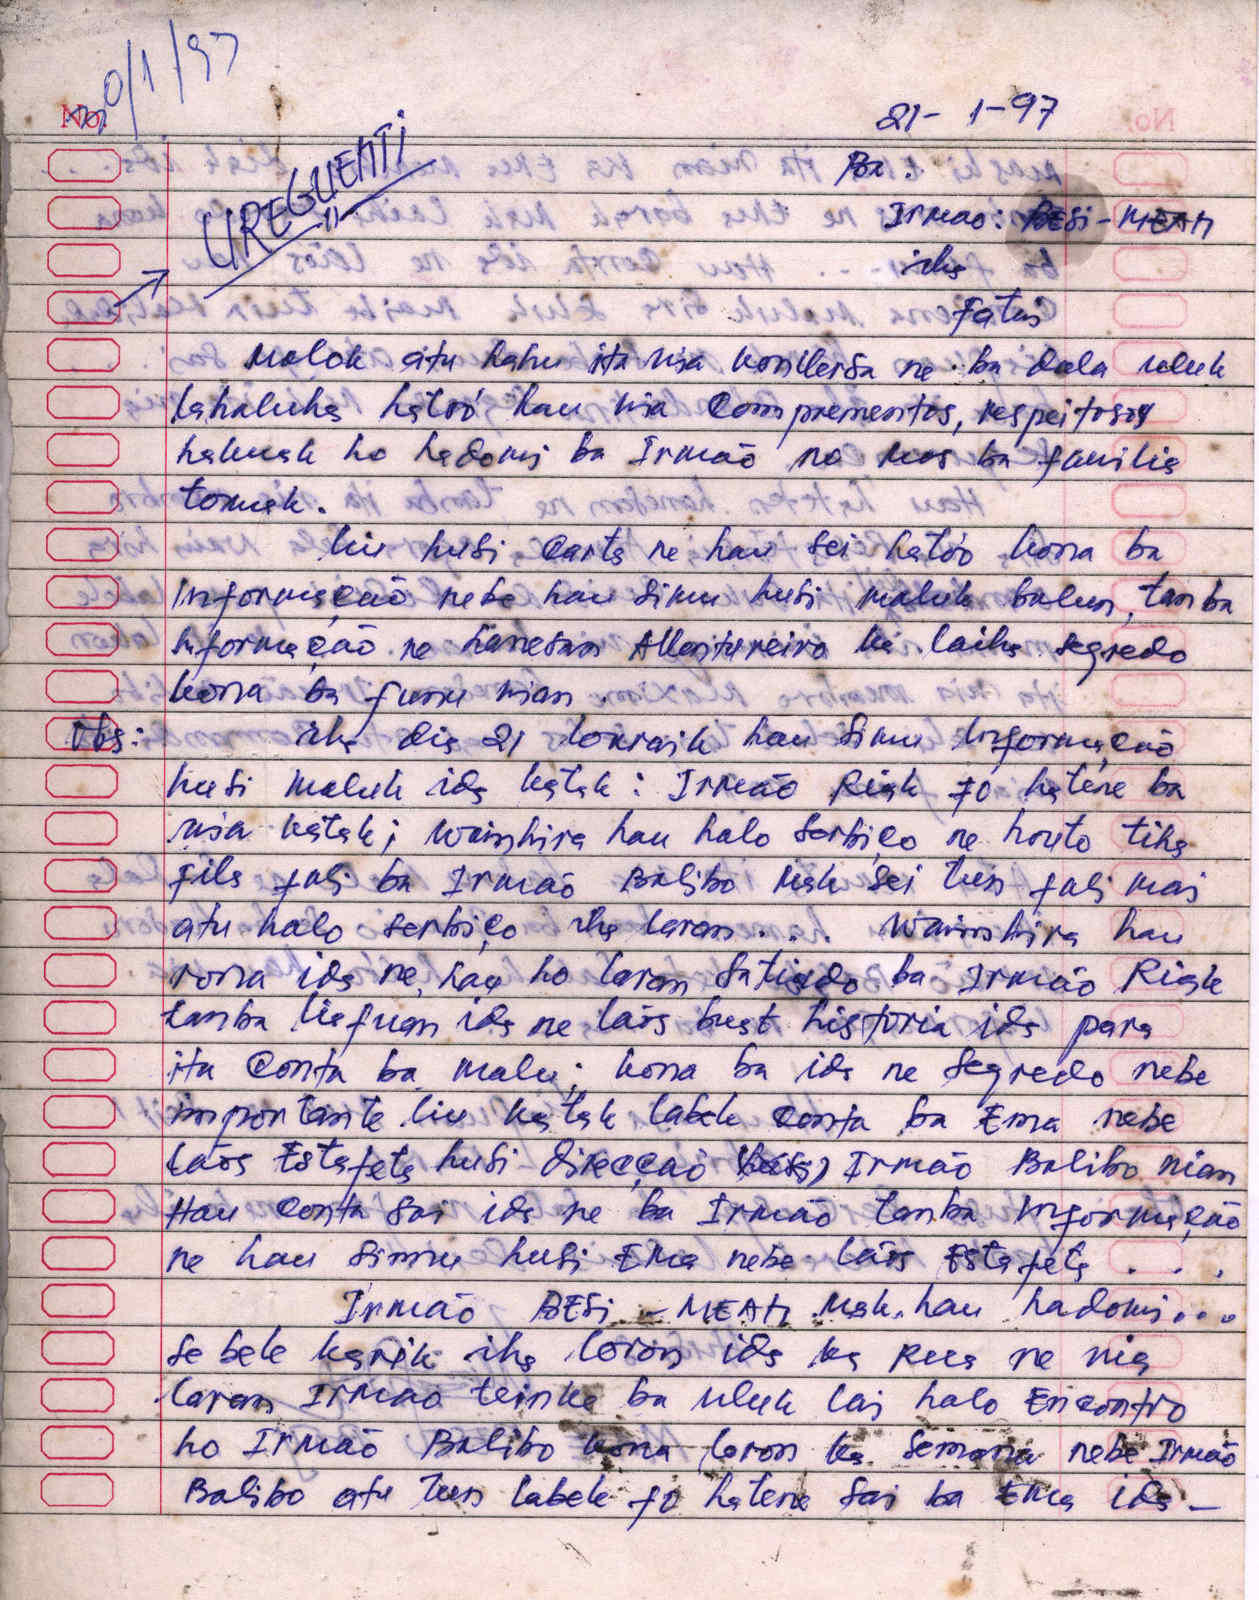 30/1/97
No.
21- 1-97
UREGUENTI
Ba:
Irmão: BESI-MEAH
iha
Fatin
Molok atu hahu ita nia konVersa ne ba dala uluk
hahaluha hatoó hau nia Comprementos, respeitosos
hakuak ho hadomi ba Irmão no mos ba familia
tomak.
Liu husi Carta ne hau sei hatoó kona ba
Informação nebe hau simu husi maluk balun, tanba
Informação ne hanesan Abentureiro ka laiha segredo
kona ba funu nian.
Obs: iha dia 21 loKraik hau simu Informação
husi maluk ida katak: Irmão Riak fó hatene ba
nia katak; Wainhira hau halo Serbiço ne hotu tiha
fila fali ba Irmão Balibo mak sei tun fali mai
atu halo serbiço iha laran... Wainhira hau
rona ida ne, hau ho laran Satiado ba Irmão Riak
tanba liafuan ida ne laós buat historia ida para
ita Conta ba malu; kona ba ida ne segredo nebe
importante liu katak labele Conta ba Ema nebe
laós Estafeta husi direcção Irmão Balibo nian
Hau Conta sai ida ne ba Irmão tanba Informação
ne hau simu husi Ema nebe laós Estafeta . . .
Irmão BESI-MEAH mak hau hadomi...
Se bele karik iha loron ida ka rua ne nia
laran Irmão tenke ba uluk lai halo Encontro
ho Irmão Balibo kona loron ka semana nebe Irmão
Balibo atu tun labele fó hatene sai ba Ema ida-